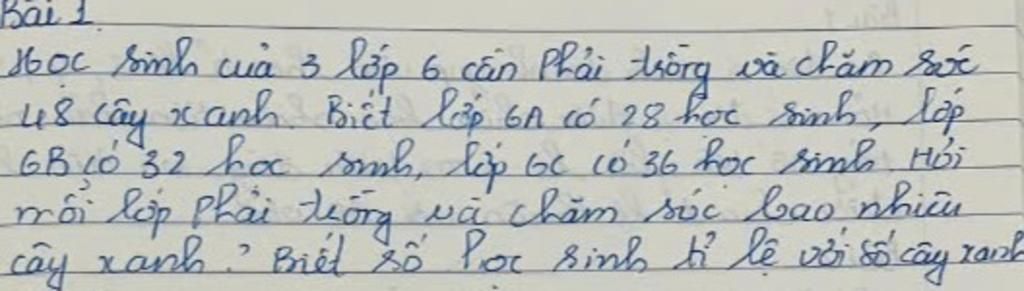 Bài 1
Học sinh của 3 lớp 6 cần phải trồng và chăm sóc
48 cây xanh. Biết lớp 6A có 28 học sinh, lớp
6B có 32 học sinh, lớp 6C có 36 học sinh. Hỏi
mỗi lớp phải trồng và chăm sóc bao nhiêu
cây xanh? Biết số học sinh tỉ lệ với số cây xanh